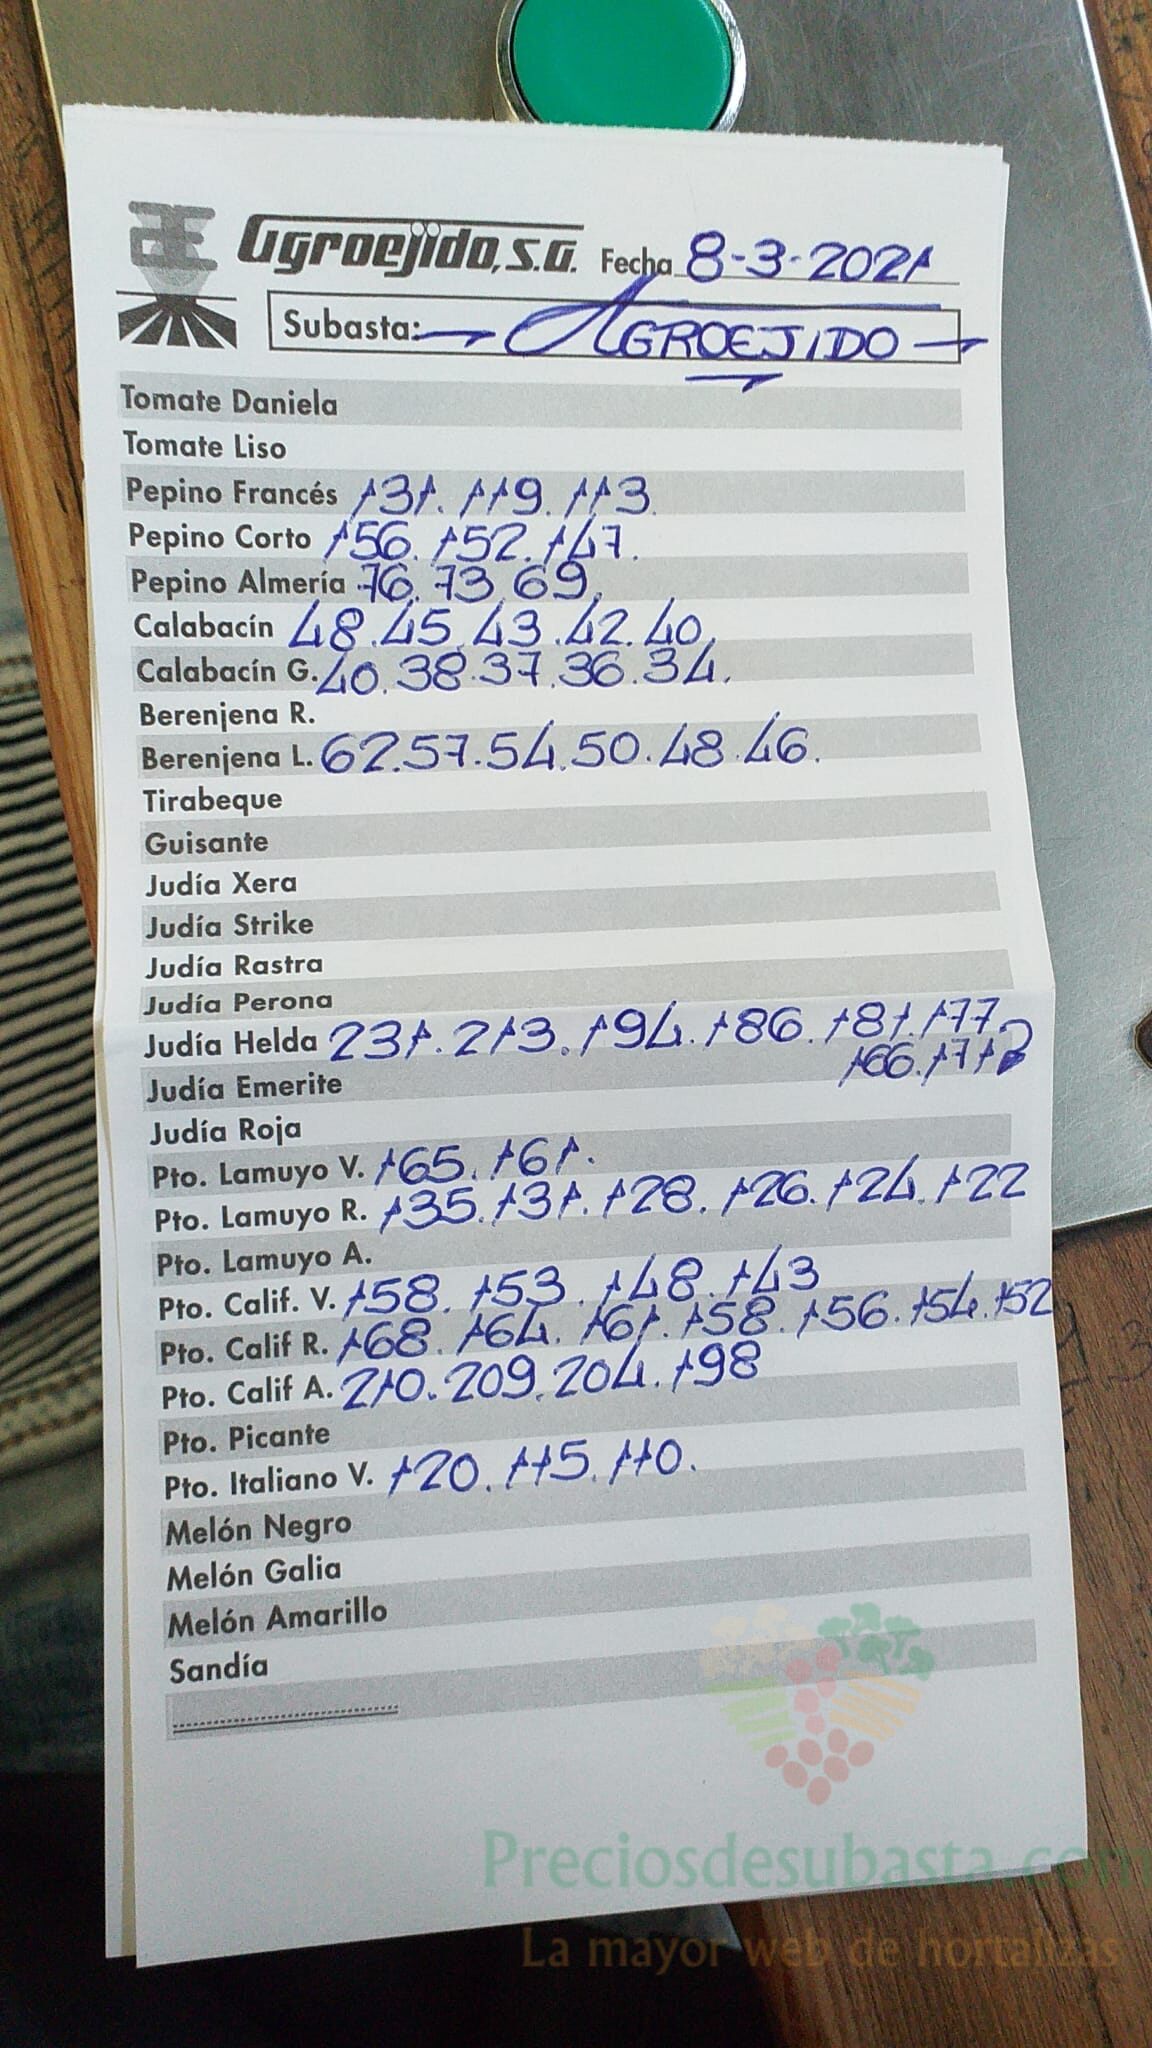 Agroejido, S.A. Fecha 8-3-2021
Subasta: AGROEJIDO
Tomate Daniela
Tomate Liso
Pepino Francés 131. 119. 113.
Pepino Corto 156. 152. 147.
Pepino Almería 76. 73. 69.
Calabacín 48. 45. 43. 42. 40.
Calabacín G. 40. 38. 37. 36. 34.
Berenjena R.
Berenjena L. 62. 57. 54. 50. 48. 46.
Tirabeque
Guisante
Judía Xera
Judía Strike
Judía Rastra
Judía Perona
Judía Helda 231. 213. 194. 186. 181. 177
166. 171
Judía Emerite
Judía Roja
Pto. Lamuyo V. 165. 161.
Pto. Lamuyo R. 135. 131. 128. 126. 124. 122
Pto. Lamuyo A.
Pto. Calif. V. 158. 153. 148. 143
Pto. Calif R. 168. 164. 161. 158. 156. 154. 152
Pto. Calif A. 210. 209. 204. 198
Pto. Picante
Pto. Italiano V. 120. 115. 110.
Melón Negro
Melón Galia
Melón Amarillo
Sandía
Preciosdesubasta.com
La mayor web de hortalizas